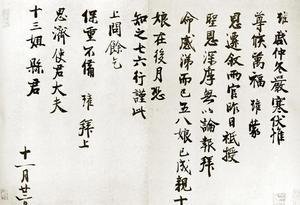 瓘啟仲冬嚴寒伏惟
尊候萬福 瓘蒙
恩遷敘兩官昨日祗授
聖恩深厚無以論報拜
命感涕而已五八娘已成親十
娘在後月恐
知之七六行謹此
上聞餘乞
保重不備 瓘拜上
思濟使君大夫
十三姐縣君
十一月廿二日